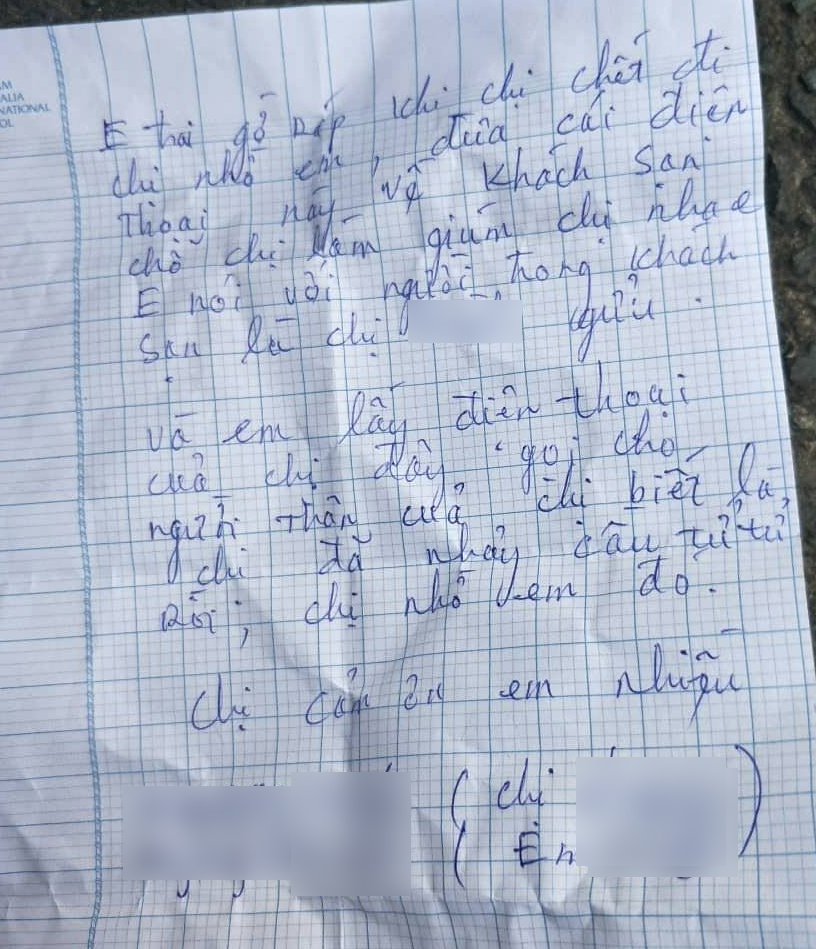 E trai gõ Ráp khi chị chết đi
chị nhờ em, đưa cái điện
Thoại này về khách sạn
chỗ chị làm giùm chị nha e
E nói với người trong khách
sạn là chị gửi.
và em lấy điện thoại
của chị đây gọi cho
người thân của chị biết là,
chị đã nhảy cầu tử tử
Rồi; chị nhờ em đó.
chị cảm ơn em nhiều
( chị )
( En )